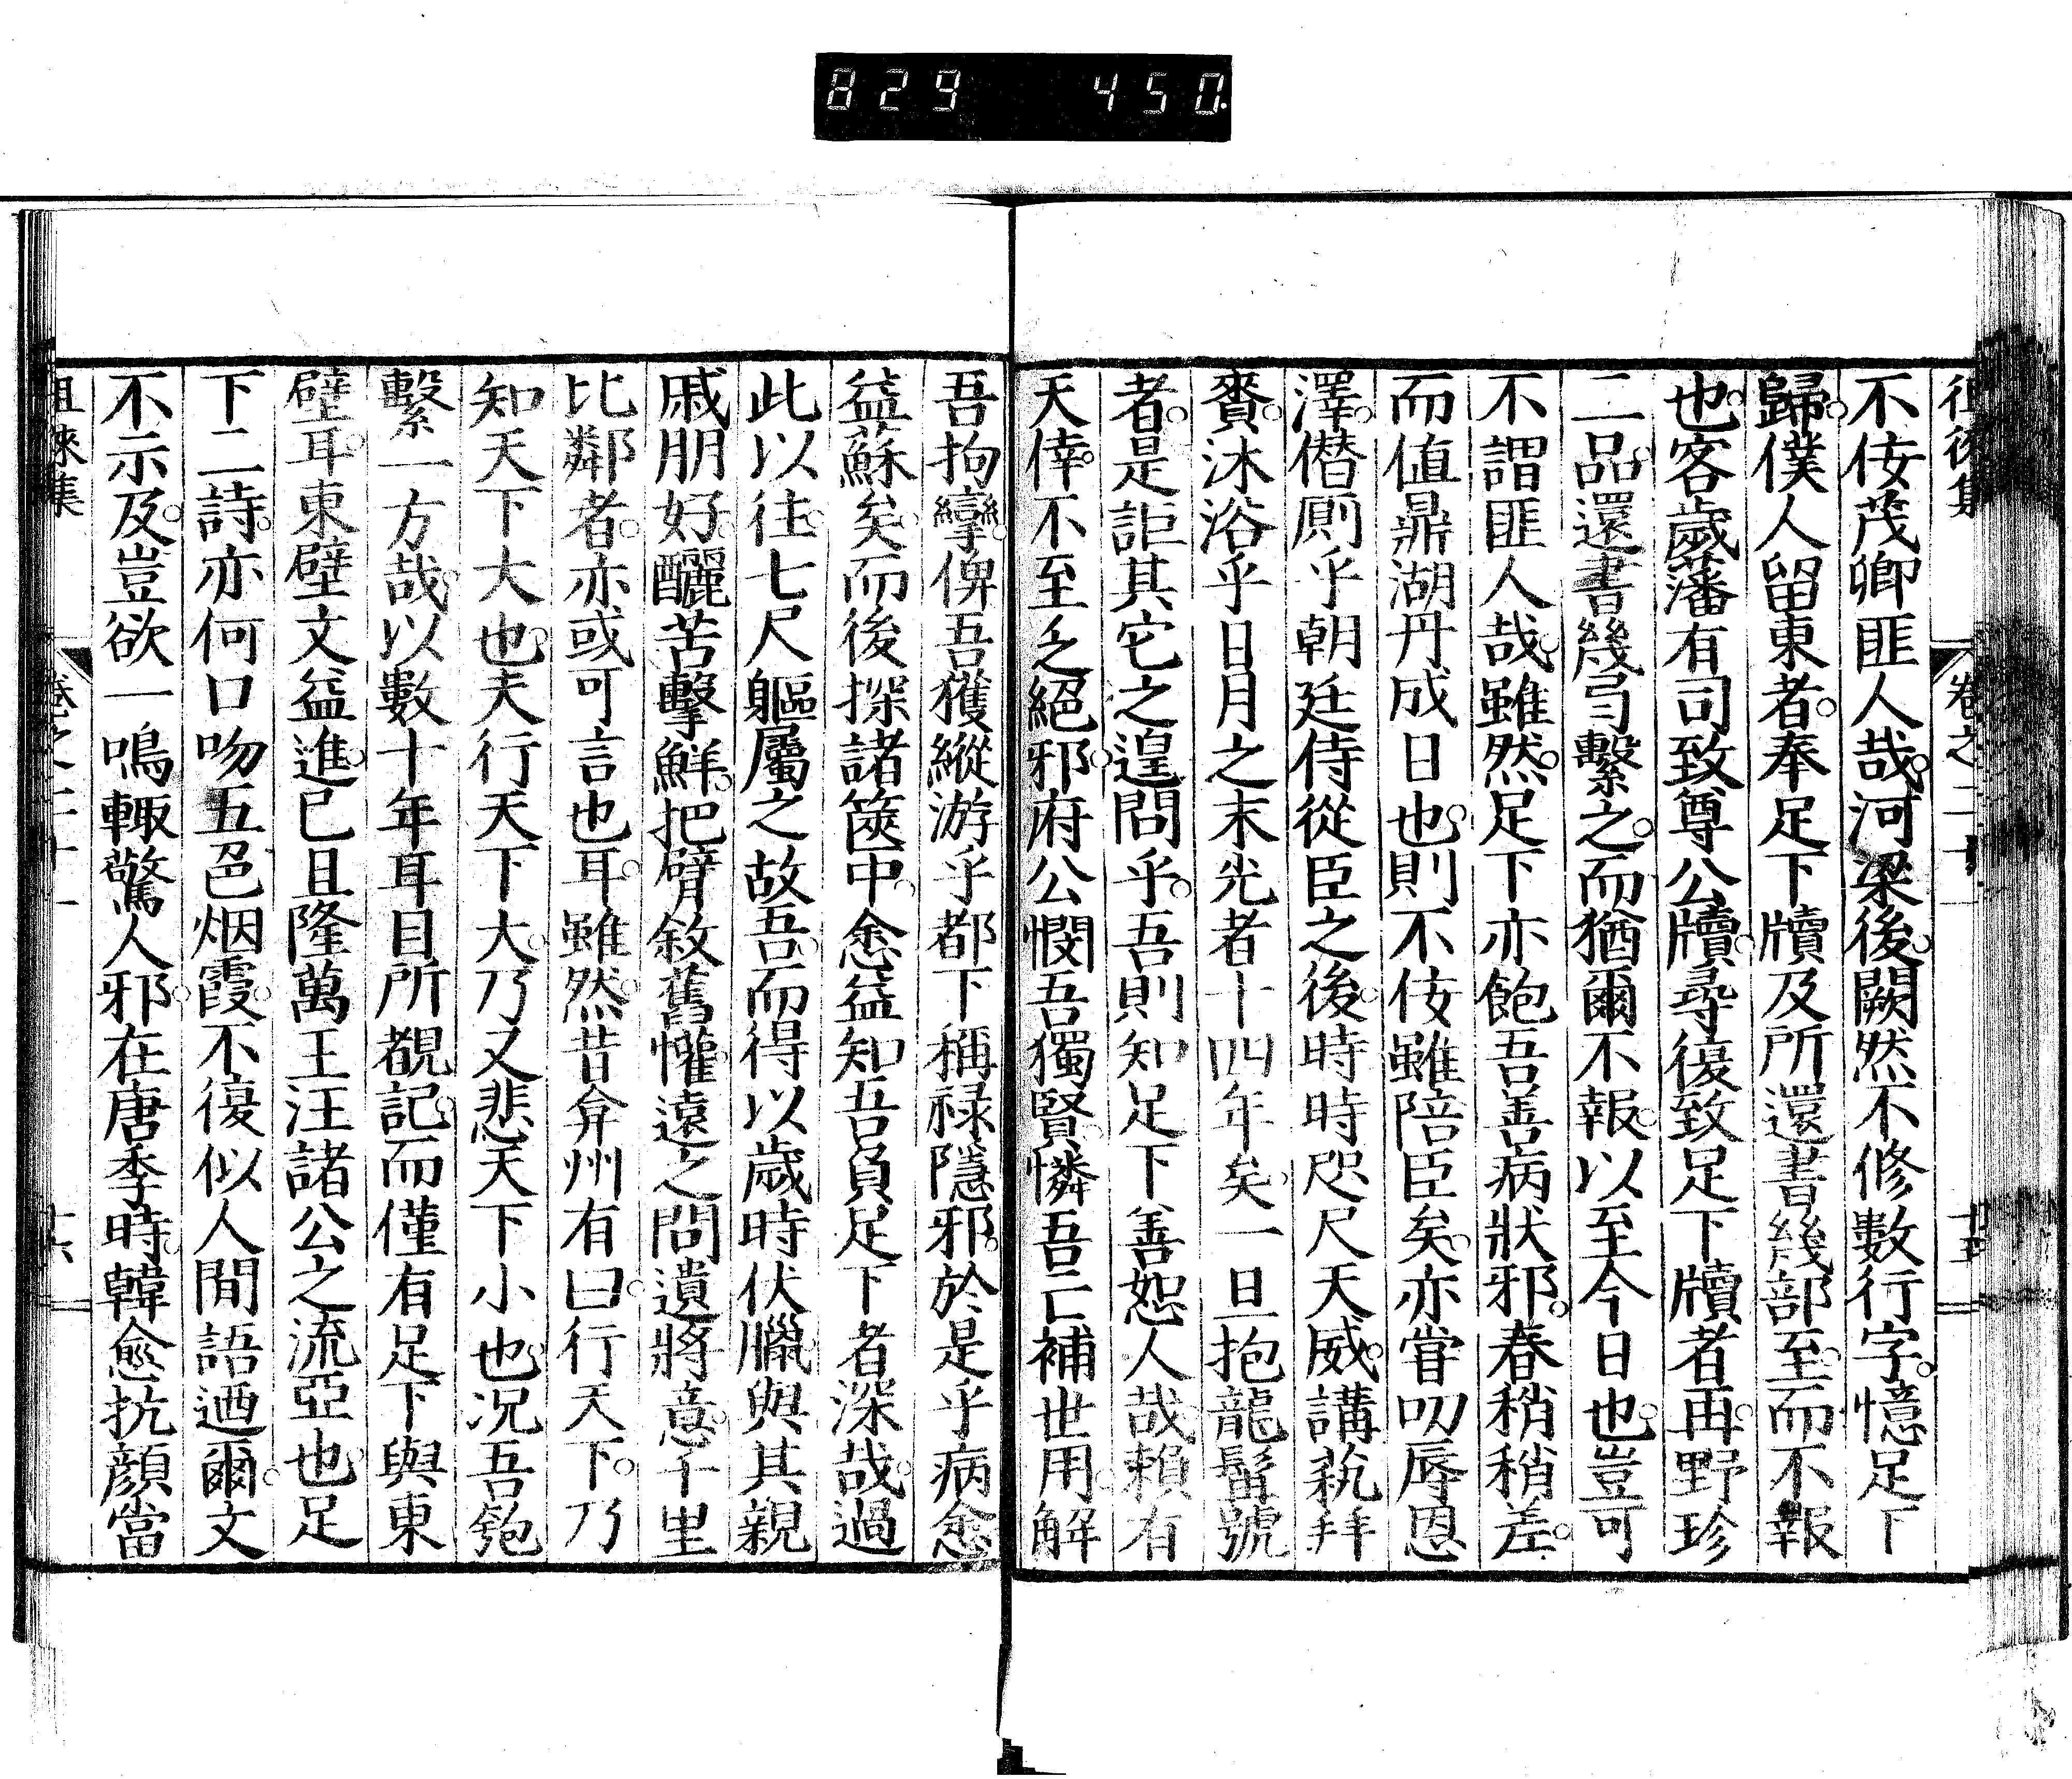 829 450.
不佞茂卿匪人哉河梁後闕然不修數行字憶足下
歸僕人留東者奉足下牘及所還書幾部至而不報
也客歲藩有司致尊公牘尋復致足下牘者再野珍
二品還書幾弓繫之而猶爾不報以至今日也豈可
不謂匪人哉雖然足下亦飽吾善病狀邪春稍稍差
而值鼎湖丹成日也則不佞雖陪臣矣亦嘗叨辱恩
澤僭厠乎朝廷侍從臣之後時時咫尺天威講執拜
賚沐浴乎日月之末光者十四年矣一旦抱龍髯號
者是詎其它之遑問乎吾則知足下善恕人哉賴有
天倖不至乏絕邪府公憫吾獨賢憐吾亡補世用解
吾拘攣俾吾獲縱游乎都下稱祿隱邪於是乎病愈
益蘇矣而後探諸篋中愈益知吾負足下者深哉過
此以往七尺軀屬之故吾而得以歲時伏臘與其親
戚朋好釃苦擊鮮把臂敘舊懽遠之問遺將意千里
比鄰者亦或可言也耳雖然昔弇州有曰行天下乃
知天下大也夫行天下大乃又悲天下小也况吾匏
繫一方哉以數十年耳目所覩記而僅有足下與東
壁耳東壁文益進已且隆萬王汪諸公之流亞也足
下二詩亦何口吻五色烟霞不復似人間語迺爾文
不示及豈欲一鳴輙驚人邪在唐季時韓愈抗顏當